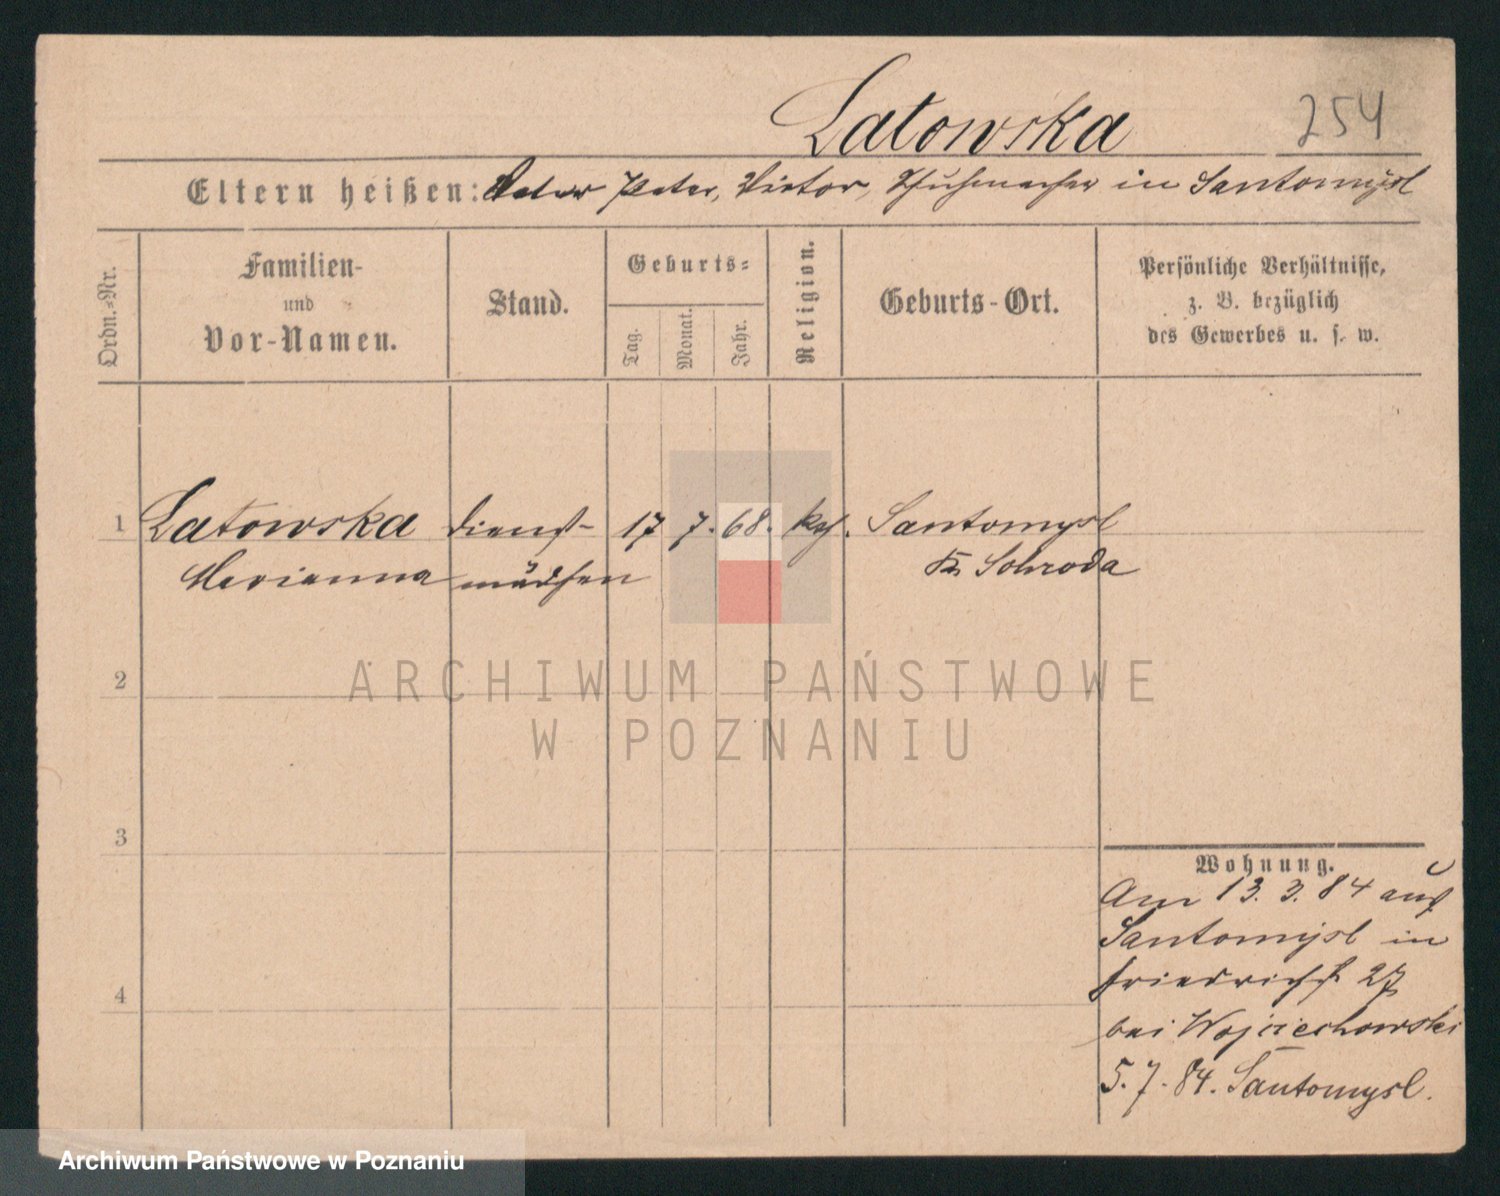 Latowska
254
Eltern heißen: Vater Peter, Victor, Schuhmacher in Santomysl
Ordn.-Nr.
Familien-
und
Vor-Namen.
Stand.
Geburts-
Tag.
Monat.
Jahr.
Religion.
Geburts-Ort.
Persönliche Verhältnisse,
z. B. bezüglich
des Gewerbes u. s. w.
1 Latowska Dienst- 17 7. 68. kath. Santomysl
Marianna mädchen Kr. Schroda
2
3
4
Wohnung.
Am 13. 3. 84 aus
Santomysl in
Friedrichstr. 27
bei Wojciechowski
5. 7. 84. Santomysl.
ARCHIWUM PAŃSTWOWE
W POZNANIU
Archiwum Państwowe w Poznaniu